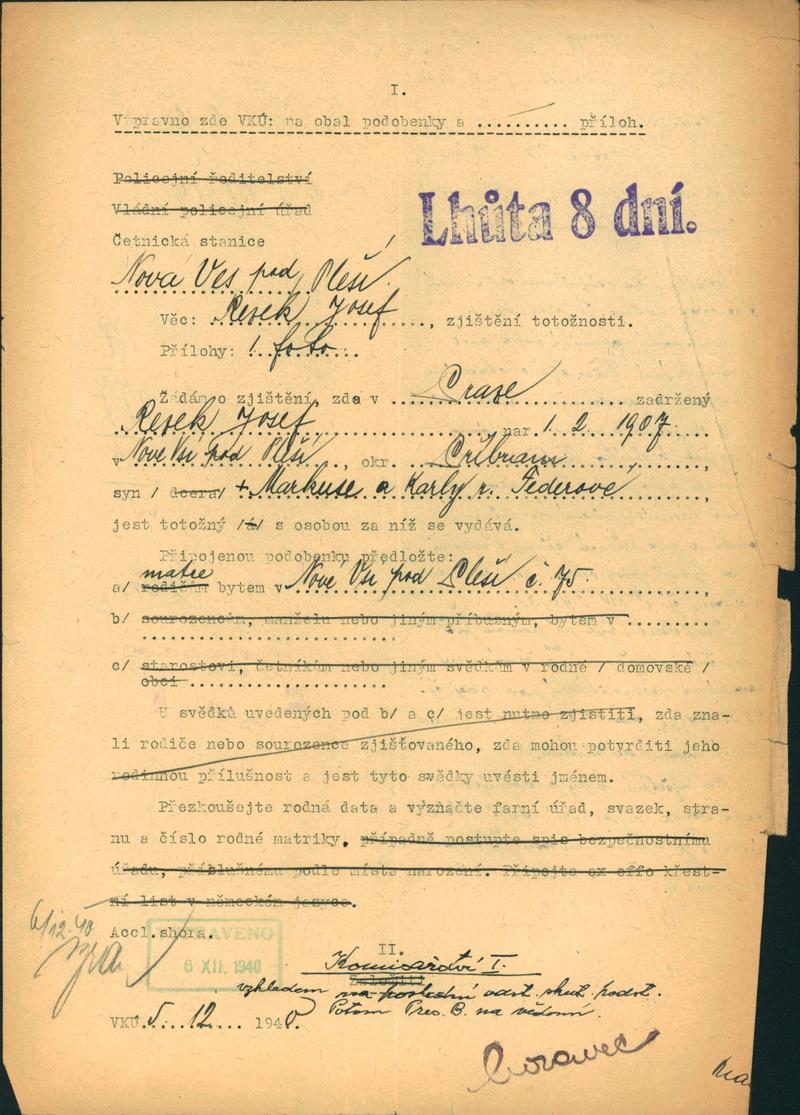 I.
Výpravno zde VKÚ: na obal podobenky a .......... příloh.
Policejní ředitelství
Vládní policejní úřad
Lhůta 8 dní.
Četnická stanice
Nová Ves pod Pleší
Věc: Resek Josef, zjištění totožnosti.
Přílohy: 1 foto
Žádám o zjištění, zda v Praze zadržený
Resek Josef nar. 1. 2. 1907
v Nové Vsi pod Pleší, okr. Příbram,
syn / dcera/ + Markuse a Karly r. Federove,
jest totožný /á/ s osobou za níž se vydává.
Připojenou podobenku předložte:
matce
a/ rodičům bytem v Nové Vsi pod Pleší č. 75,
b/ sourozencům, manželu nebo jiným příbuzným, bytem v ..........,
c/ starostovi, četníkům nebo jiným svědkům v rodné / domovské /
obci ....................
U svědků uvedených pod b/ a c/ jest nutno zjistiti, zda zna-
li rodiče nebo sourozence zjišťovaného, zda mohou potvrditi jeho
rodinnou příslušnost a jest tyto svědky uvésti jménem.
Přezkoušejte rodná data a význačte farní úřad, svazek, stra-
nu a číslo rodné matriky, případně postupte spis bezpečnostnímu
úřadu, příslušnému podle místa narození. Připojte ex offo křest-
ní list v německém jazyce.
6/12.40
Accl.shora.
6 XII. 1940
II.
Komisařství I.
vzhledem na poslední odst. skut. podst.
Potom Pres. B. na vědomí.
VKÚ 5. 12. 1940